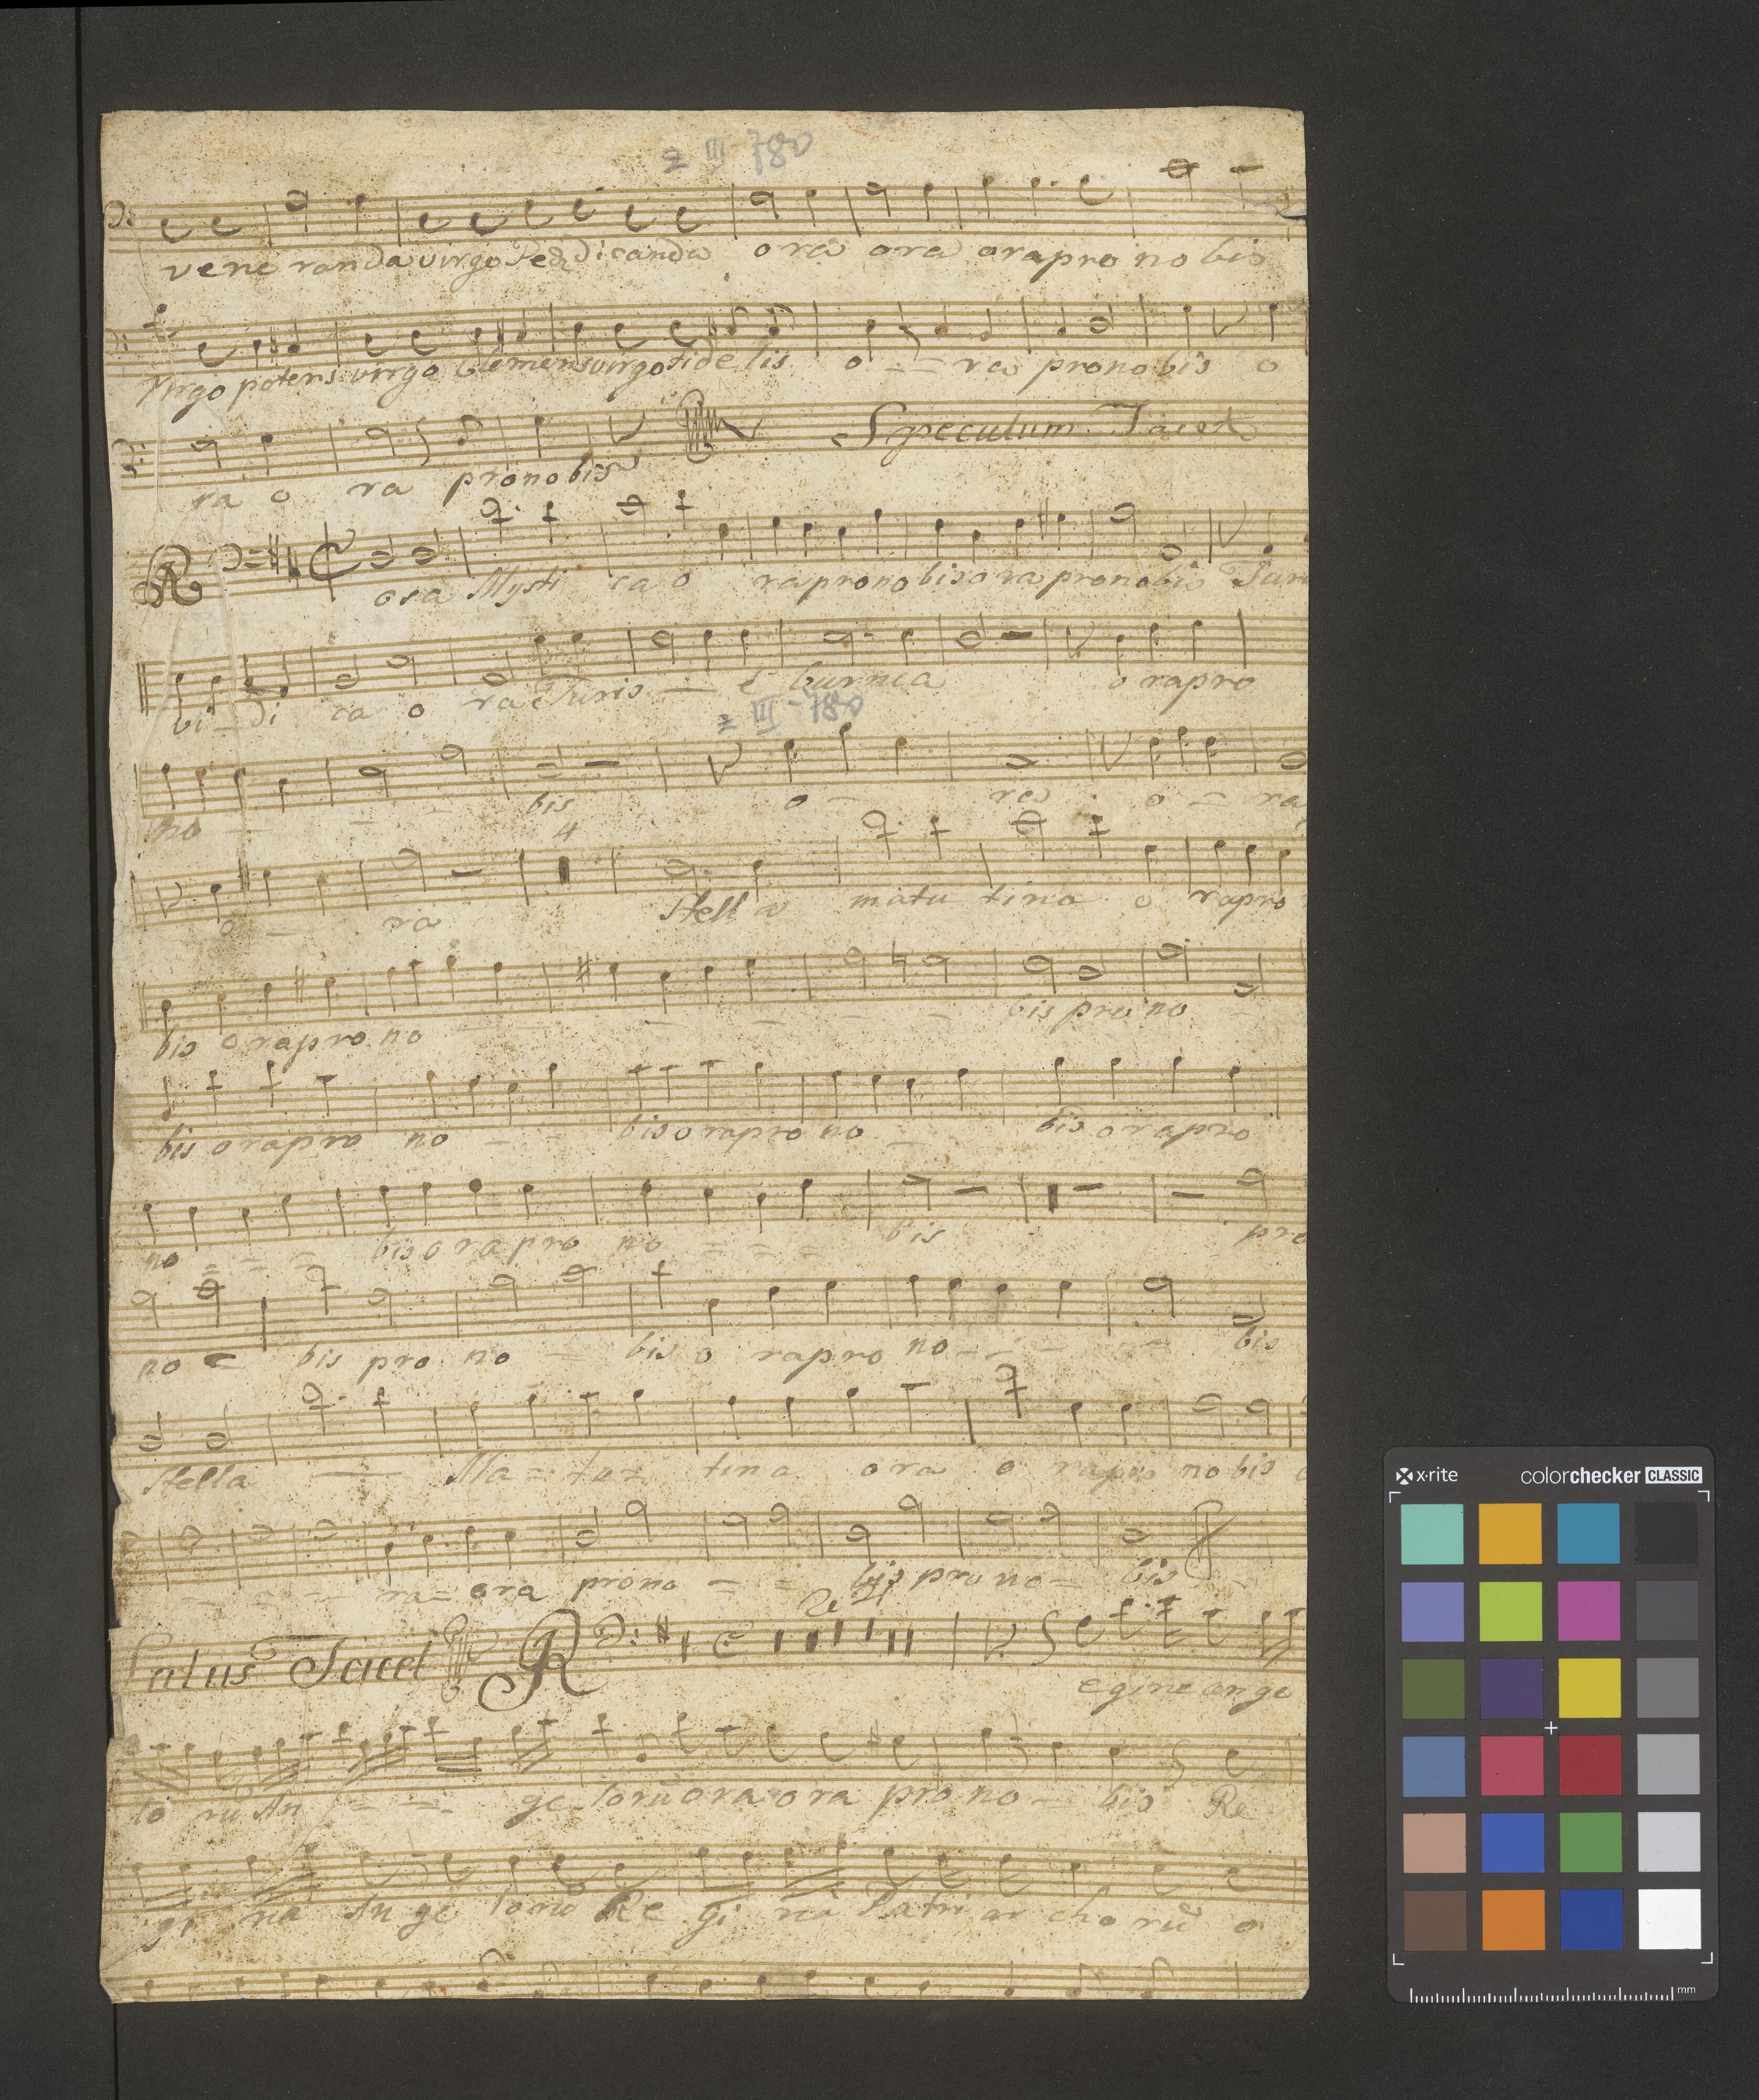 z III-780
vene randa virgo Pre dicanda o ra ora ora pro no bis
Virgo potens virgo Clemens virgo fide lis o - - ra pro no bis o
ra o ra pro no bis Speculum Tacet
R osa Mysti ca o ra pro no bis o ra pro no bis Turr
bi - di ca o ra Turis - e burnea o ra pro
z III-780
no - - - bis o - ra o - ra
4
o - ra Stella matu tina o ra pro
bis o ra pro no - - - - bis pro no -
bis o ra pro no - - bis o ra pro no - bis o ra pro
no = = = bis o ra pro no = = = bis pro
no - bis pro no - bis o ra pro no - - - = bis
Stella - Ma = tu = tina ora o ra pro no bis o
- - - ra = ora pro no = = bis pro no = bis
Salus Tacet R 21
egine ange
lo rũ An - - - ge lorũ ora ora pro no - bis Re
gi na An ge lorũ Re gi na Patri ar cho rũ o
x·rite colorchecker CLASSIC
mm